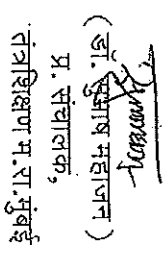 (डॉ. सुभाष महाजन)
प्र. संचालक,
तंत्रशिक्षण म.रा.मुंबई